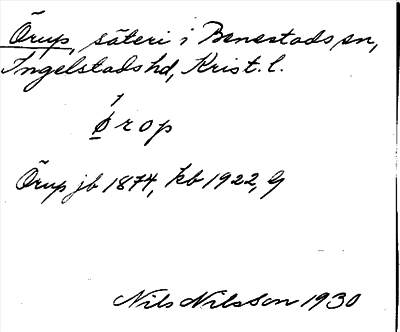 Örup, säteri i Benestads sn,
Ingelstads hd, Krist. l.
ørop
Örup jb 1874, kb 1922, G
Nils Nilsson 1930